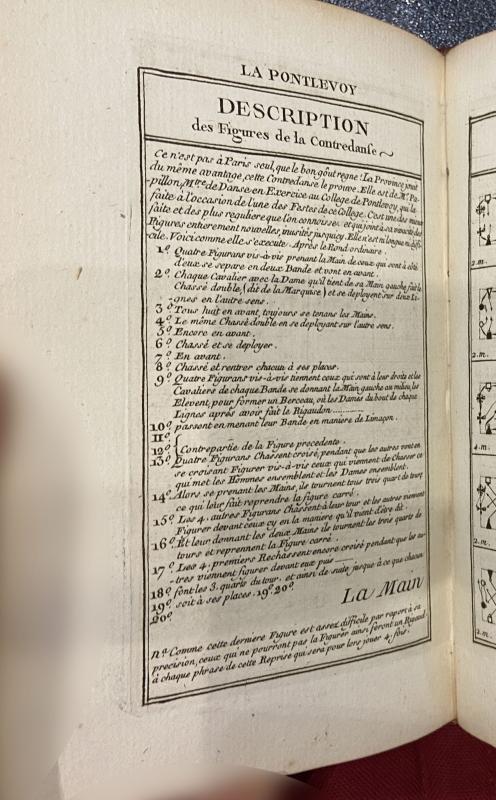 LA PONTLEVOY
DESCRIPTION
des Figures de la Contredanse
Ce n'est pas à Paris seul, que le bon goût regne: La Province jouit
du même avantage, cette Contredanse le prouve. Elle est de Mr. Pa-
-pillon, Mtre de Danse en Exercice au College de Pontlevoy, qui l'a
faite à l'occasion de l'une des Festes de ce College. C'est une des mieux
faite et des plus reguliere que l'on connoisse, et qui joint à sa vivacité des
Figures entierement nouvelles, inusités jusqu'icy. Elle n'est ni longue ni diffi-
cile. Voici comme elle s'execute. Après le Rond ordinaire.
1.º Quatre Figurans vis-à-vis prenant la Main de ceux qui sont à côté
d'eux se separe en deux Bande et vont en avant.
2.º Chaque Cavalier avec la Dame qu'il tient de sa Main gauche fait le
Chassé double, (dit de la Marquise) et se deployent sur deux Li-
-gnes en l'autre sens.
3.º Tous huit en avant, toujours se tenans les Mains.
4.º Le même Chassé double en se deployant sur l'autre sens.
5.º Encore en avant.
6.º Chassé et se deployer.
7.º En avant.
8.º Chassé et rentrer chacun à ses places.
9.º Quatre Figurans vis-à-vis tiennent ceux qui sont à leur droite et les
Cavaliers de chaque Bande se donnant la Main gauche au milieu, les
Elevent, pour former un Berceau, où les Dames du bout de chaque
Lignes après avoir fait le Rigaudon
10.º passent en menant leur Bande en maniere de Limaçon.
11.º
12.º { Contrepartie de la Figure precedente.
13.º Quatre Figurans Chassent croisé, pendant que les autres vont en
se croisant Figurer vis-à-vis ceux qui viennent de Chasser ce
qui met les Hommes ensemble et les Dames ensemble.
14.º Alors se prenant les Mains, ils tournent tous trois quart de tour,
ce qui leur fait reprendre la figure carré.
15.º Les 4. autres Figurans Chassent à leur tour et les autres viennent
Figurer devant ceux cy en la maniere qu'il vient d'être dit.
16.º Et leur donnant les deux Mains ils tournent les trois quarts de
tours et reprennent la Figure carré.
17.º Les 4. premiers Rechassent encore croisé pendant que les au-
-tres viennent figurer devant eux puis
18.º font les 3. quarts du tour, et ainsi de suite jusqu'à ce que chacun
19.º soit à ses places. 19.º 20.º
20.º
La Main
n.ª Comme cette derniere Figure est assez difficile par raport à sa
precision, ceux qui ne pourront pas la Figurer ainsi feront un Rigaud.
à chaque phrase de cette Reprise qui sera pour lors jouer 4. fois.
2.m.
2.m.
4.m.
2.m.
2.m.